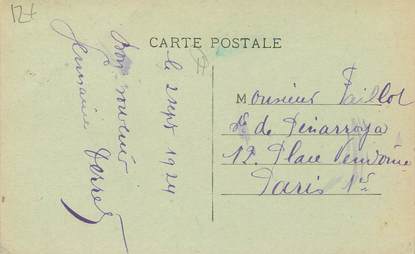 12+
CARTE POSTALE
le 2 sept 1924
Bon souvenir
Germaine Torres
Monsieur Taillot
Sté de Peñarroya
12. Place Vendôme
Paris 1er